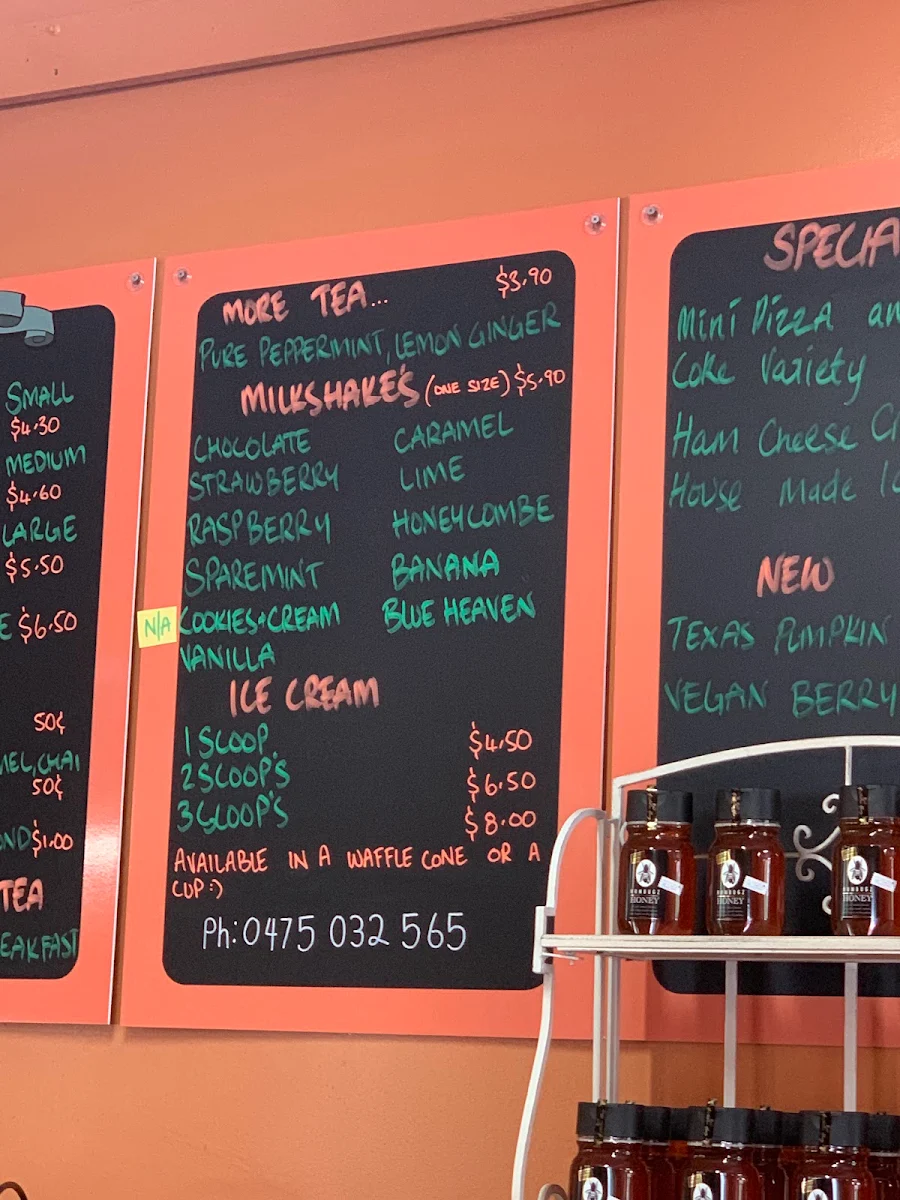 SMALL
$4.30
MEDIUM
$4.60
LARGE
$5.50
$6.50
50¢
CHAI
50¢
$1.00
TEA
MORE TEA... $3.90
PURE PEPPERMINT, LEMON GINGER
MILKSHAKE'S (ONE SIZE) $5.90
CHOCOLATE CARAMEL
STRAWBERRY LIME
RASPBERRY HONEYCOMBE
SPAREMINT BANANA
N/A COOKIES+CREAM BLUE HEAVEN
VANILLA
ICE CREAM
1 SCOOP $4.50
2 SCOOP'S $6.50
3 SCOOP'S $8.00
AVAILABLE IN A WAFFLE CONE OR A
CUP :)
Ph: 0475 032 565
Mini Pizza
Coke Variety
Ham Cheese
House Made
NEW
TEXAS PUMPKIN
VEGAN BERRY
HONEY
HONEY
HONEY